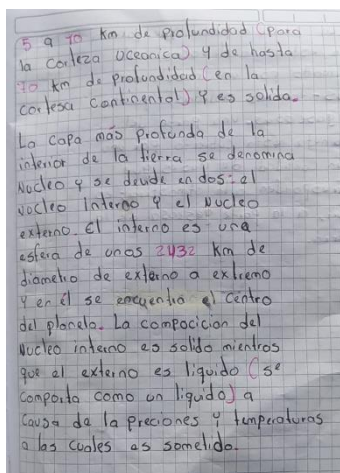 5 a 70 km de profundidad (para
la corteza oceanica) y de hasta
70 km de profundidad (en la
cortesa continental) y es solida.
La capa más profunda de la
interior de la tierra se denomina
Nucleo y se devide en dos: el
Nocleo Interno y el Nucleo
externo. El interno es una
esfera de unos 2432 km de
diametro de externo a extremo
y en él se encuentra el centro
del planeta. La compocicion del
Nucleo interno es solido mientros
que el externo es liquido (se
comporta como un liquido) a
causa de la preciones y temperaturas
a las cuales as sometido.